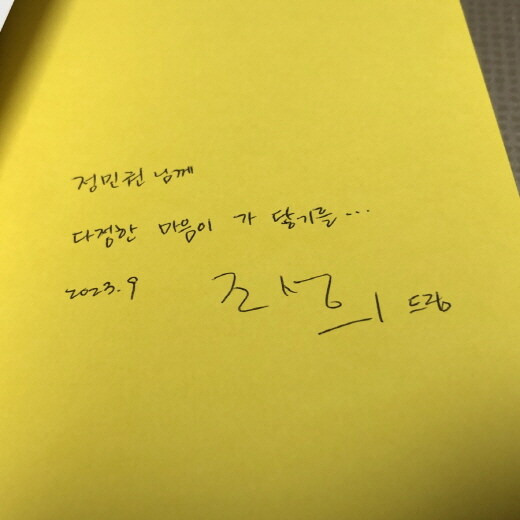 정민권 님께
다정한 마음이 가 닿기를...
2023. 9 조성의 드림